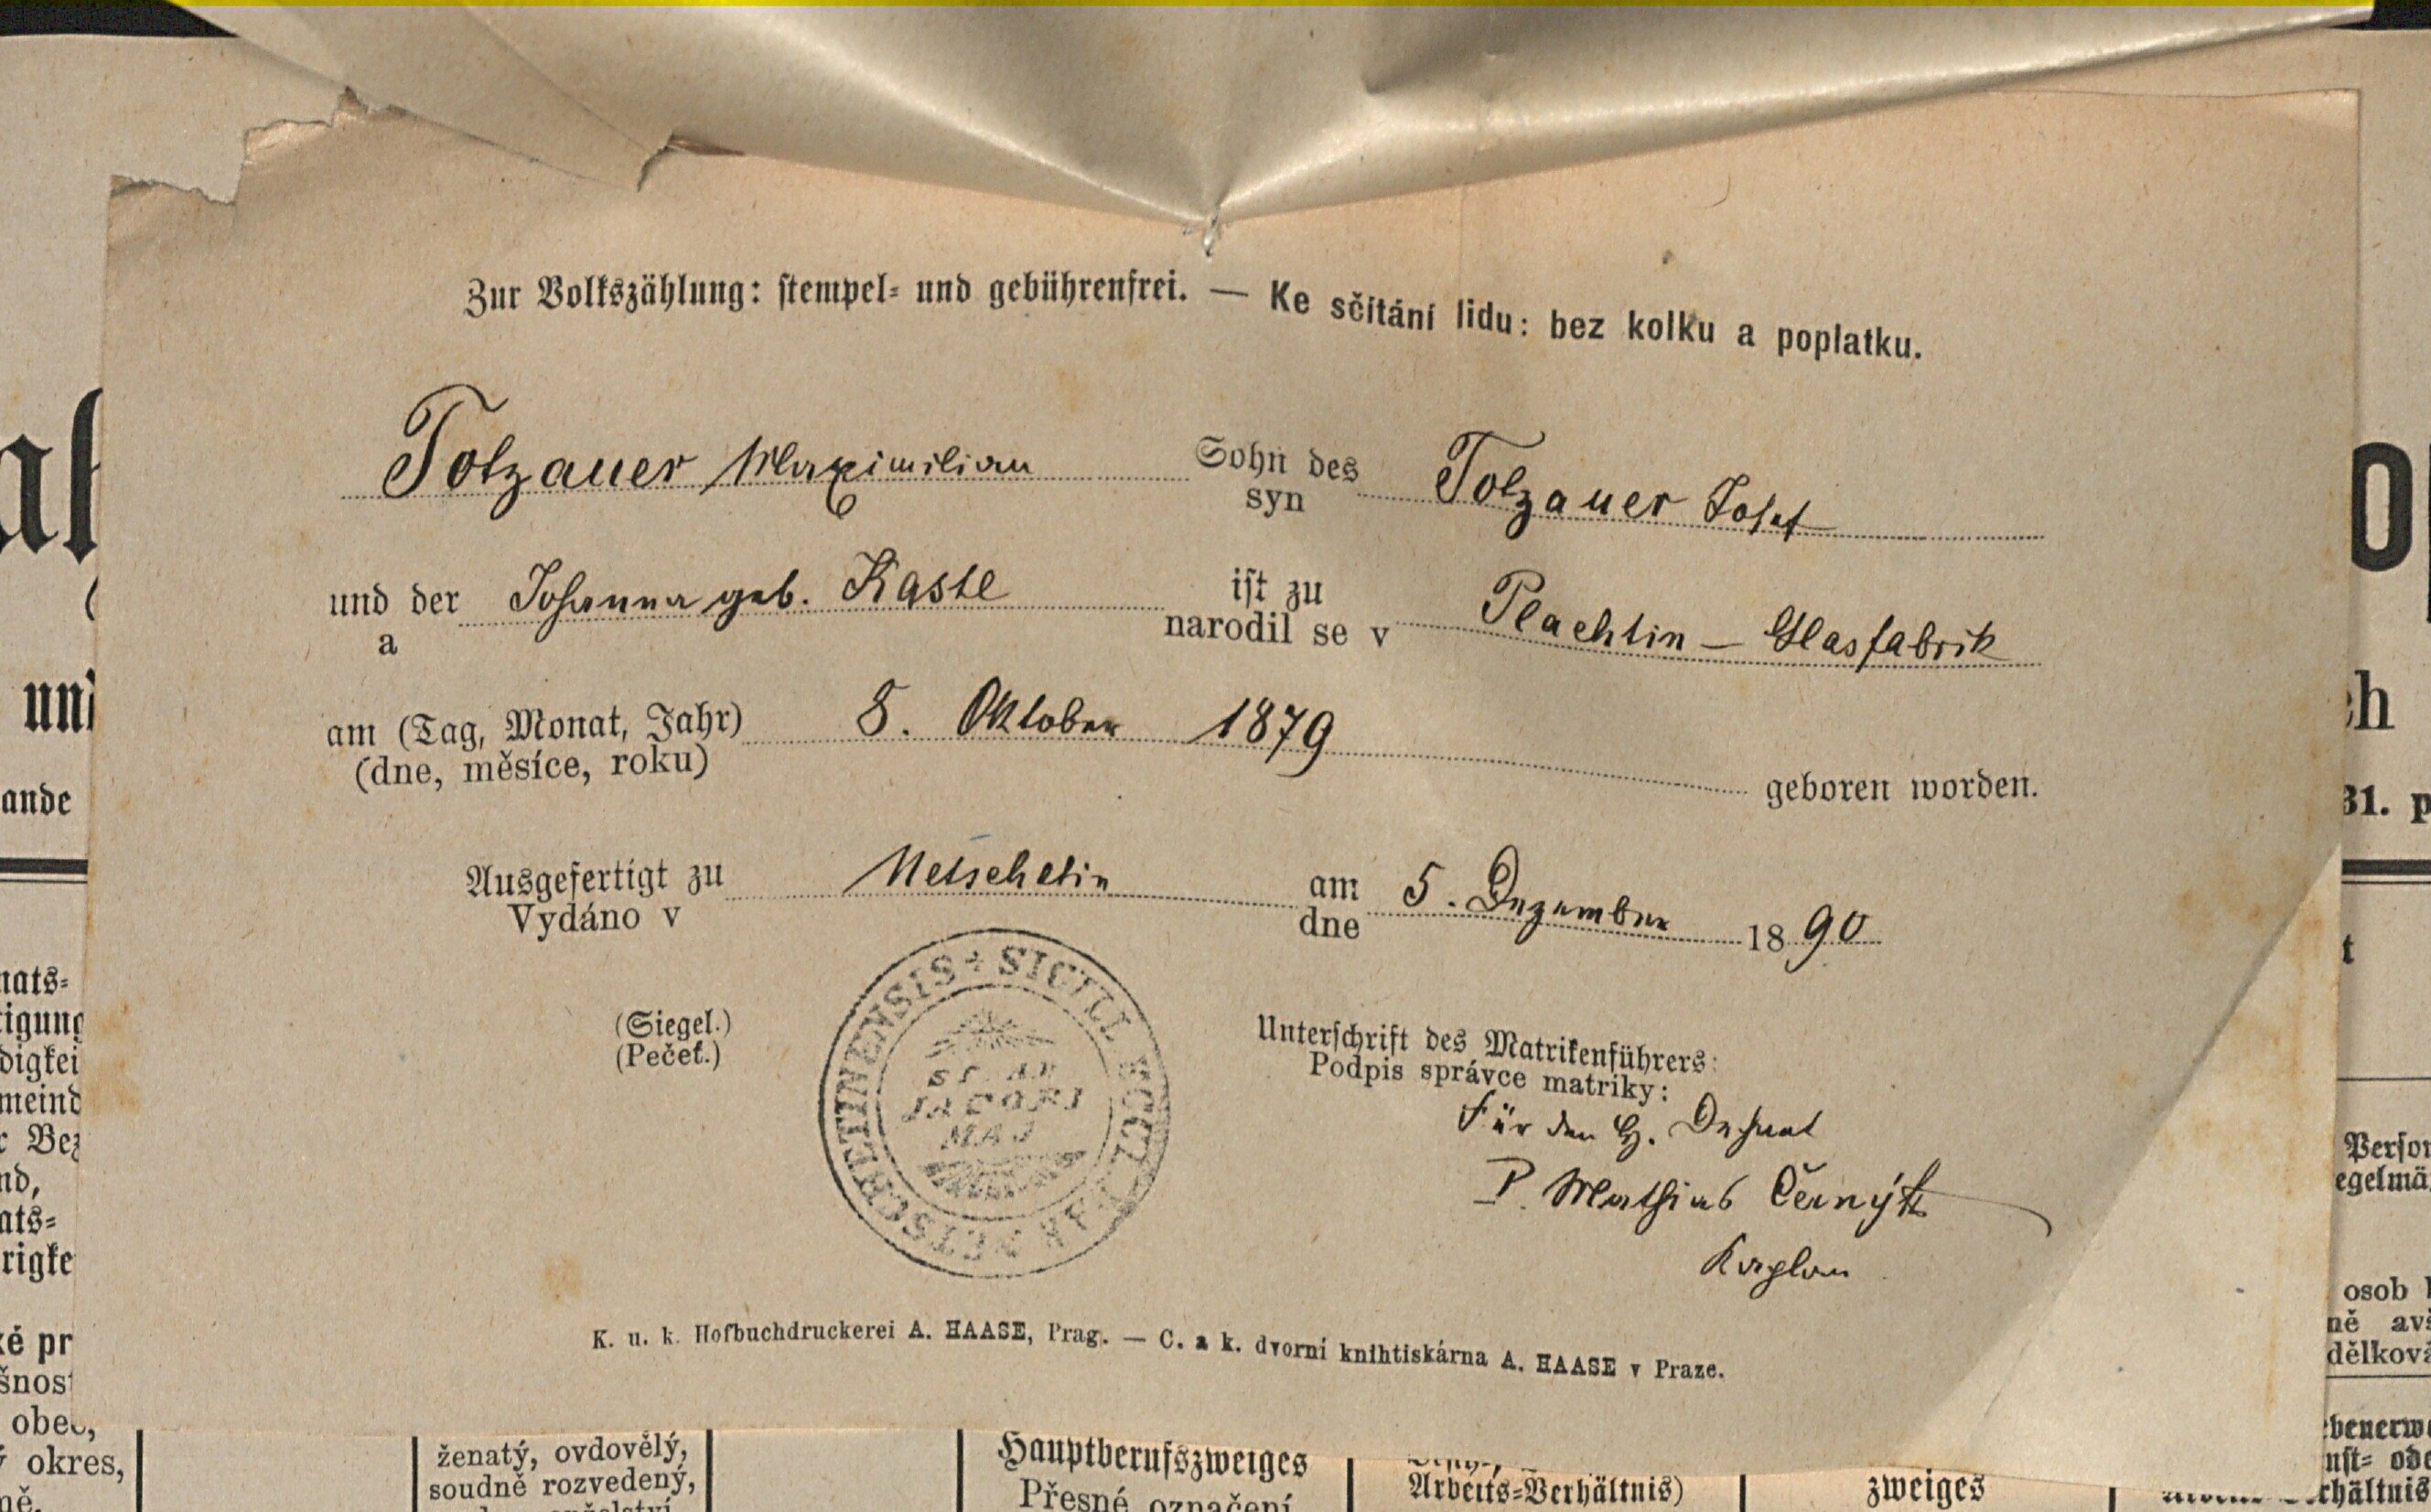 Zur Volkszählung: stempel- und gebührenfrei. — Ke sčítání lidu: bez kolku a poplatku.
Totzauer Maximilian Sohn des Totzauer Josef
syn
und der Johanna geb. Kastl ist zu Plachtin - Glasfabrik
a narodil se v
am (Tag, Monat, Jahr) 8. Oktober 1879 geboren worden.
(dne, měsíce, roku)
Ausgefertigt zu Netschetin am 5. Dezember 1890
Vydáno v dne
(Siegel.)
(Pečeť.)
SIGILL ECCL NETSCHETINENSIS
JACOBI
MAJ
Unterschrift des Matrikenführers:
Podpis správce matriky:
Für den H. Dechant
P. Mathias Černý
Kaplan
K. u. k. Hofbuchdruckerei A. HAASE, Prag. — C. a k. dvorní knihtiskárna A. HAASE v Praze.
und
31. p
osob
obec,
okres,
ženatý, ovdovělý,
soudně rozvedený,
Hauptberufszweiges
Přesné označení
Arbeits-Verhältnis)
zweiges